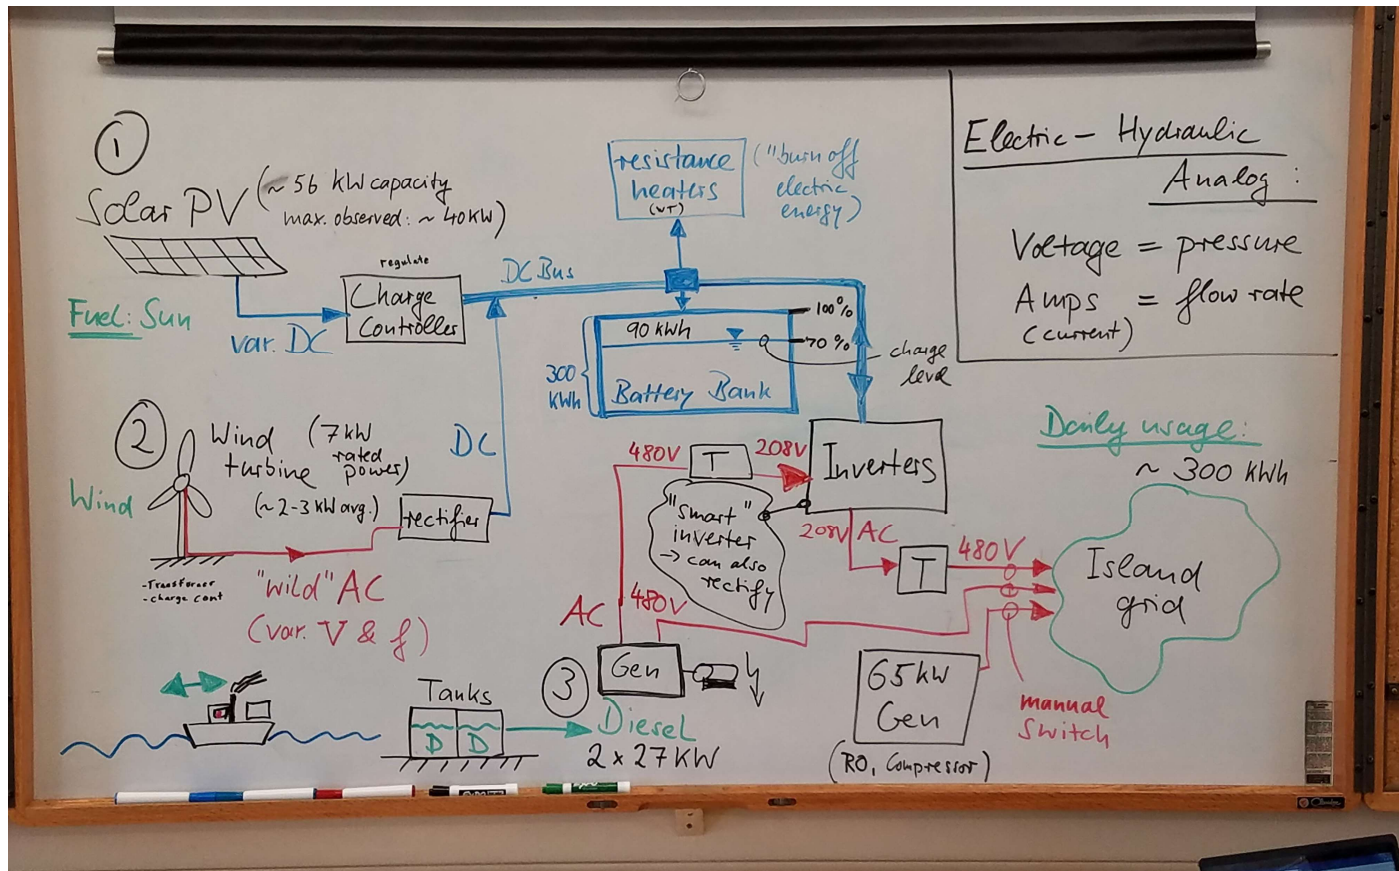 ①
Solar PV
(~ 56 kW capacity
max. observed: ~ 40 kW)
Fuel: Sun
var. DC
regulate
Charge
Controller
DC Bus
resistance
heaters
(WT)
("burn off
electric
energy)
90 kWh
100%
70%
charge
level
300
kWh
Battery Bank
Electric - Hydraulic
Analog:
Voltage = pressure
Amps = flow rate
(current)
②
Wind
turbine
(7 kW
rated
power)
(~ 2-3 kW avg.)
Wind
DC
rectifier
- Transformer
- charge cont
"wild" AC
(var. V & f)
480V
T
208V
Inverters
"Smart"
inverter
→ can also
rectify
208V AC
T
480V
Daily usage:
~ 300 kWh
Island
grid
AC
480V
③
Gen
Diesel
2 x 27 KW
Tanks
D D
65 kW
Gen
(RO, Compressor)
manual
Switch